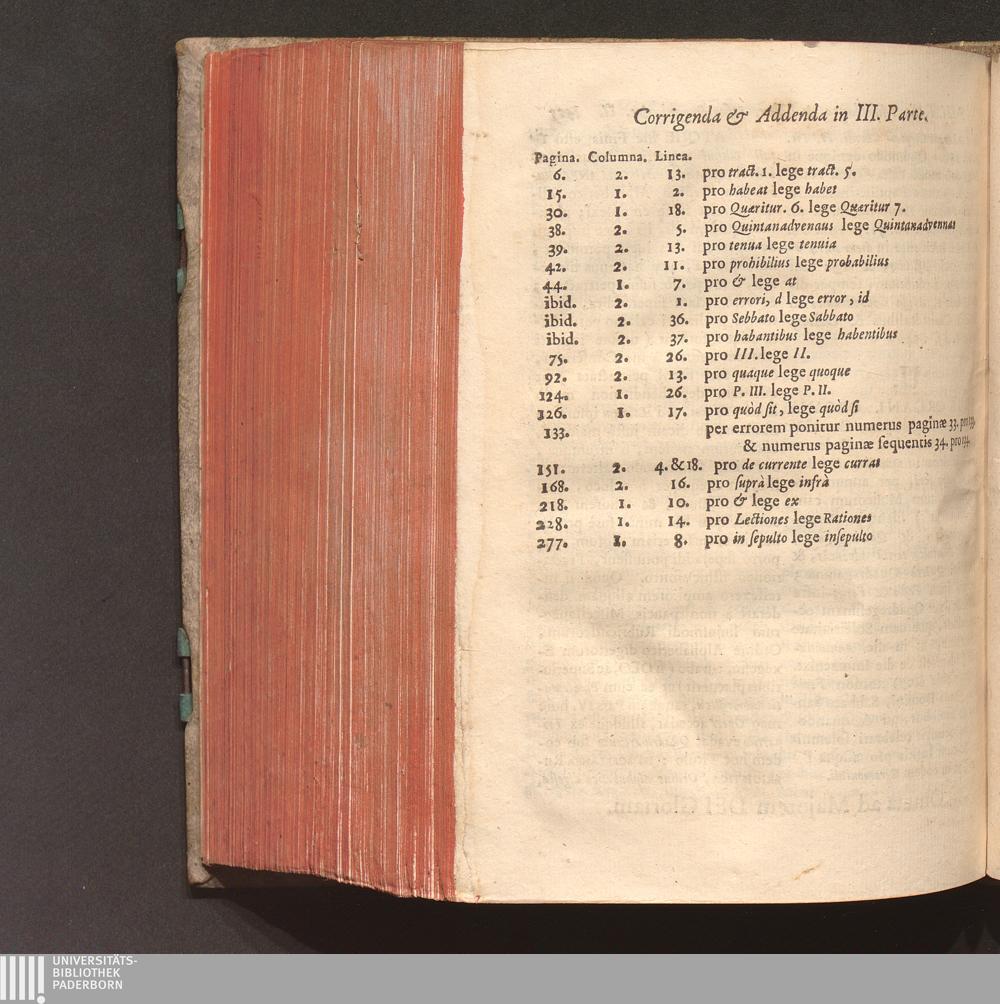 Corrigenda & Addenda in III. Parte.
Pagina. Columna. Linea.
6. 2. 13. pro tract. 1. lege tract. 5.
15. 1. 2. pro habeat lege habet
30. 1. 18. pro Quæritur. 6. lege Quæritur 7.
38. 2. 5. pro Quintanadvenaus lege Quintanadvennas
39. 2. 13. pro tenua lege tenuia
42. 2. 11. pro prohibilius lege probabilius
44. 1. 7. pro & lege at
ibid. 2. 1. pro errori, d lege error, id
ibid. 2. 36. pro Sebbato lege Sabbato
ibid. 2. 37. pro habantibus lege habentibus
75. 2. 26. pro III. lege II.
92. 2. 13. pro quaque lege quoque
124. 1. 26. pro P. III. lege P. II.
126. 1. 17. pro quòd ſit, lege quòd ſi
133. per errorem ponitur numerus paginæ 33. pro 133.
& numerus paginæ ſequentis 34. pro 134.
151. 2. 4. & 18. pro de currente lege currat
168. 2. 16. pro ſuprà lege infrà
218. 1. 10. pro & lege ex
228. 1. 14. pro Lectiones lege Rationes
277. 1. 8. pro in ſepulto lege inſepulto
UNIVERSITÄTS-
BIBLIOTHEK
PADERBORN